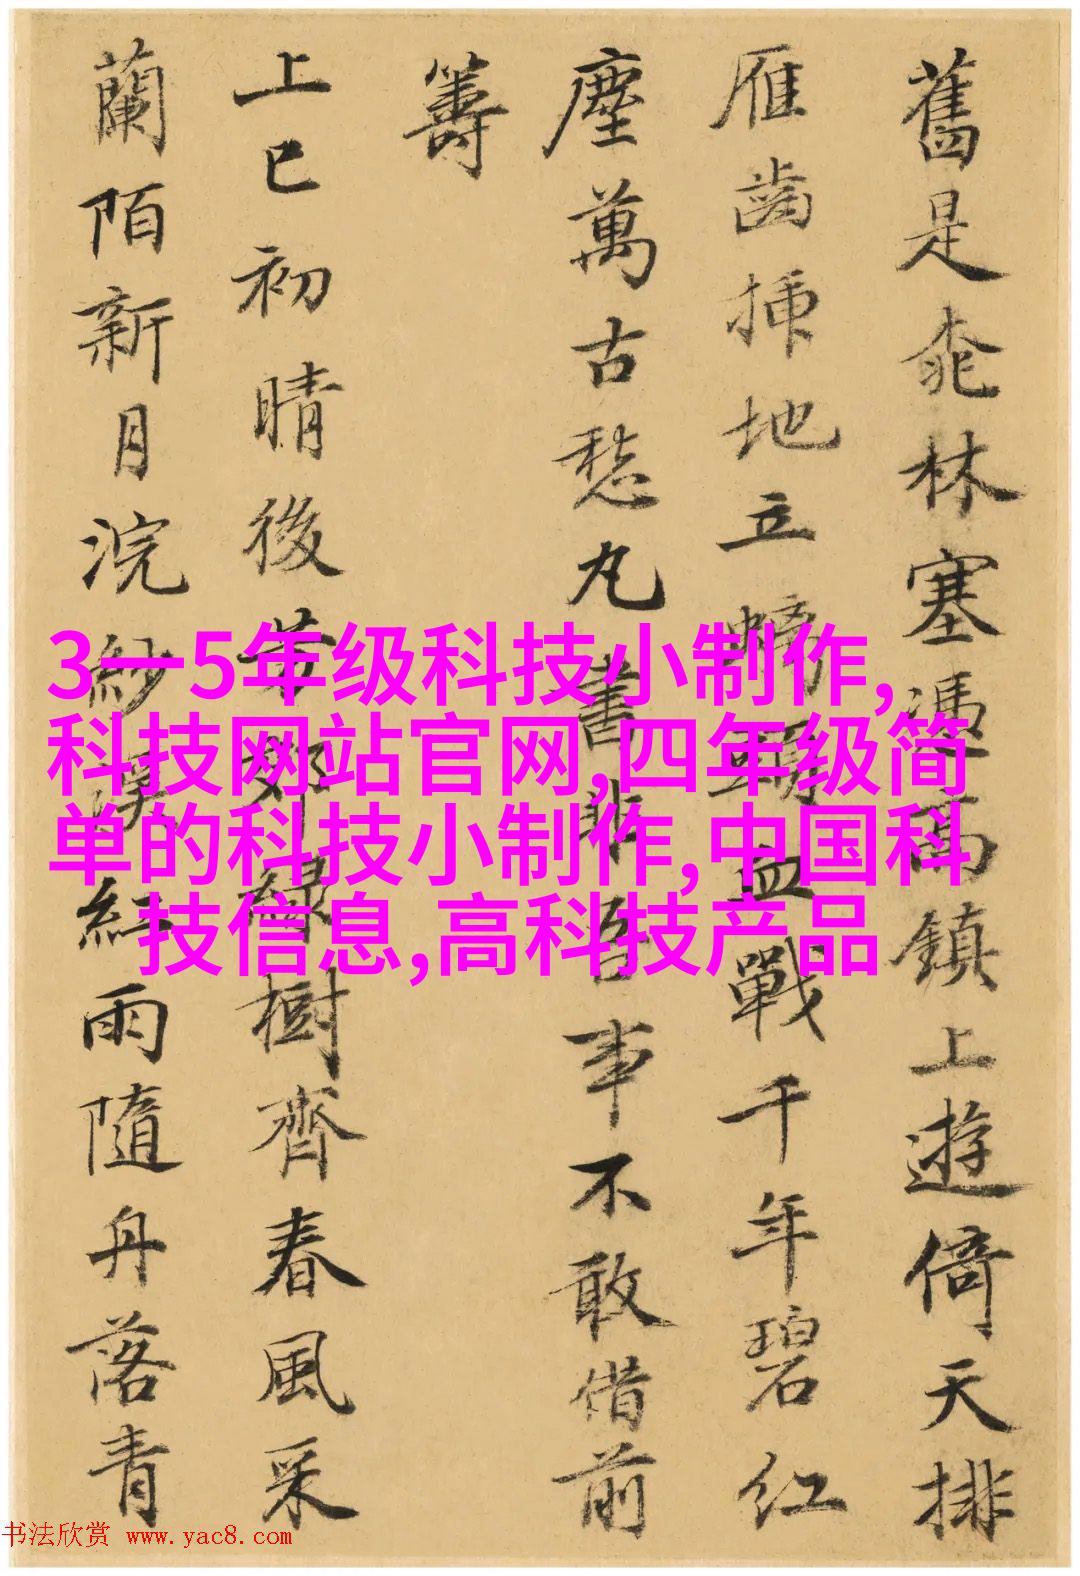 舊是桃林塞憑高鎮上遊倚天排
雁齒插地立頭血戰千年碧紅
塵萬古愁丸書非吾事不敢借前
籌
上巳初晴後芳郊綠樹齊春風采
蘭陌新月浣紗溪紅雨隨舟落青
3一5年级科技小制作,
科技网站官网,四年级简
单的科技小制作,中国科
技信息,高科技产品
书法欣赏 www.yac8.com